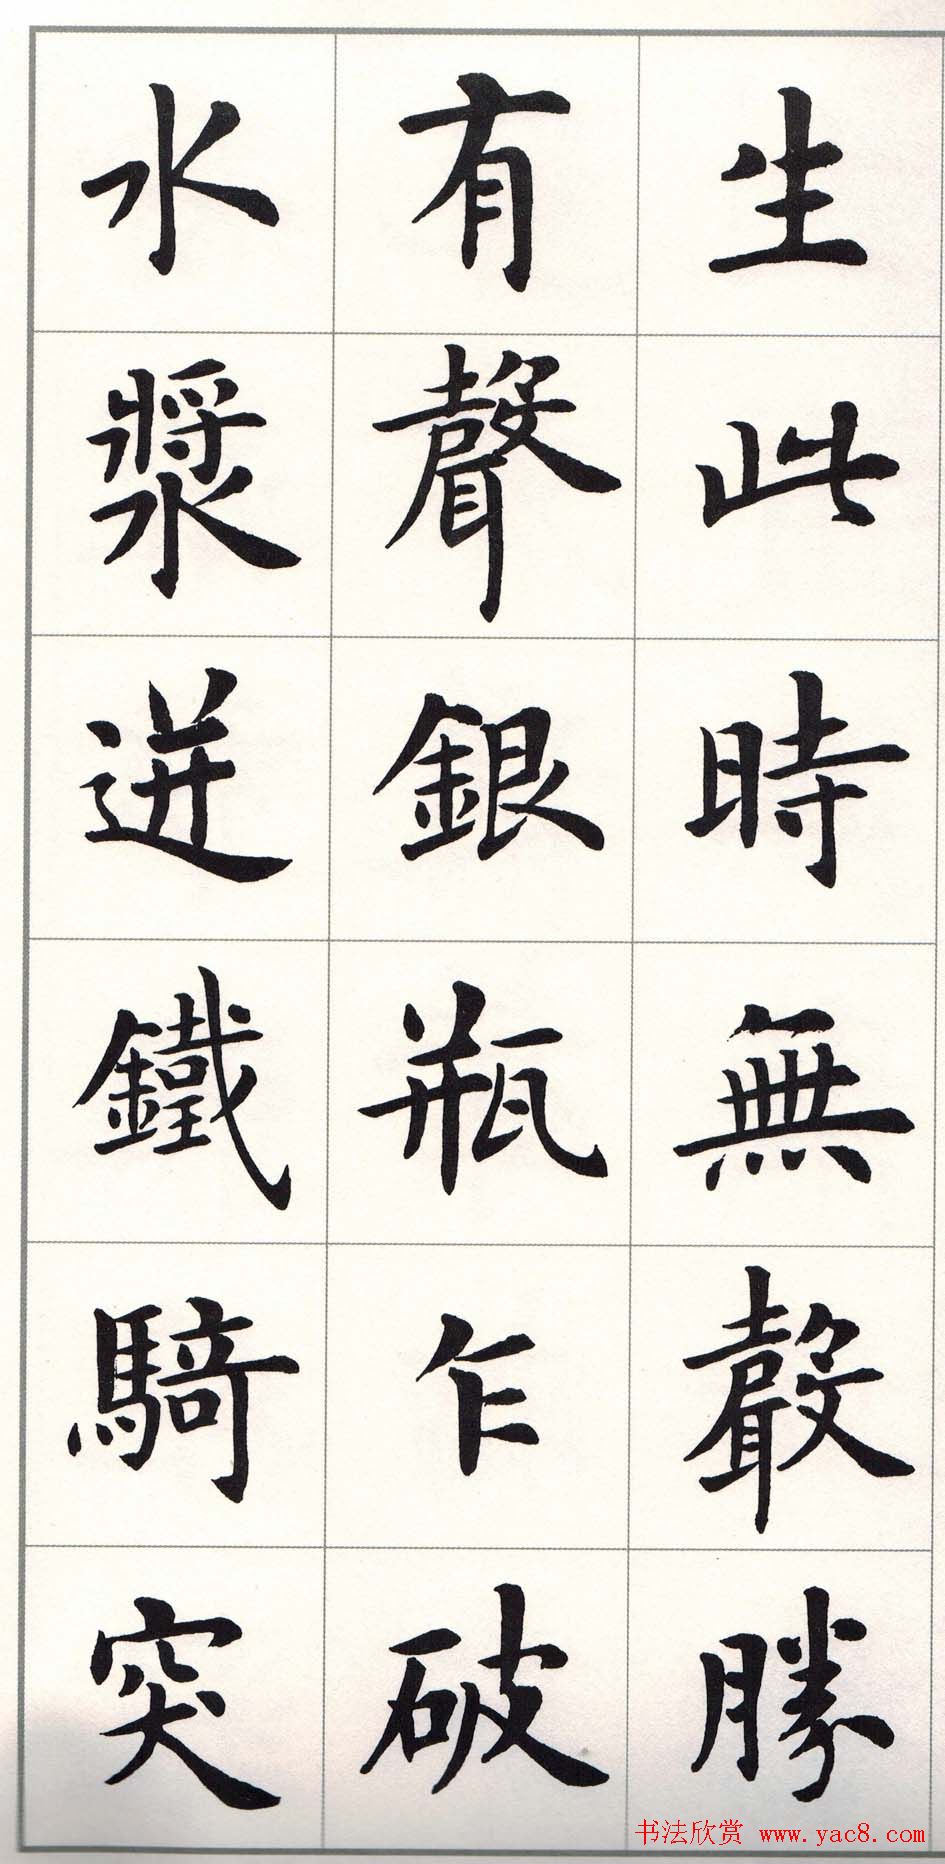 生此時無聲勝
有聲銀瓶乍破
水漿迸鐵騎突
书法欣赏 www.yac8.com